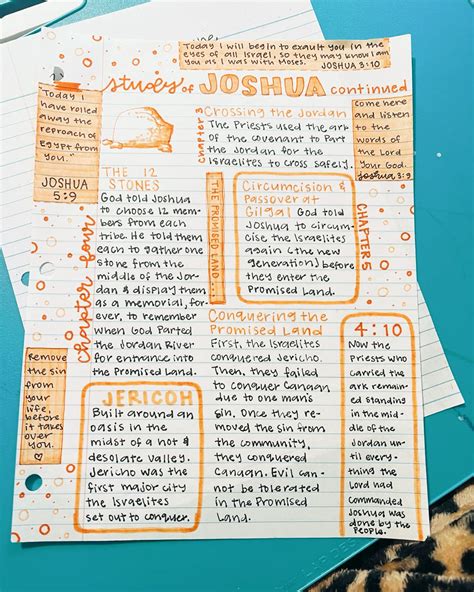 me.
Today I will begin to exault you in the
eyes of all Israel, so they may know I am
with you as I was with Moses.
JOSHUA 3:10
study of JOSHUA continued
Today I
have rolled
away the
reproach of
Egypt from
you."
JOSHUA
5:9
chapter 3
Crossing the Jordan
The Priests used the ark
of the covenant to Part
the Jordan for the
Israelites to cross safely.
Come here
and listen
to the
words of
the Lord
Your God.
Joshua 3:9
chapter four
THE 12
STONES
God told Joshua
to choose 12 mem-
bers from each
tribe. He told them
each to gather one
stone from the
middle of the Jor-
dan & display them
as a memorial, for-
ever, to remember
when God Parted
the Jordan River
for entrance into
the Promised Land.
THE PROMISED LAND
Circumcision &
Passover at
Gilgal God told
Joshua to circum-
cise the Israelites
again (the new
generation) before
they enter the
Promised Land.
CHAPTER 5
Conquering the
Promised Land
First, the Israelites
conquered Jericho.
Then, they failed
to conquer Canaan
due to one man's
sin. Once they re-
moved the sin from
the community,
they conquered
Canaan. Evil can-
not be tolerated
in the Promised
Land.
4:10
Now the
Priests who
carried the
ark remain-
ed standing
in the mid-
dle of the
Jordan un-
til every-
thing the
Lord had
Commanded
Joshua was
done by the
People.
Remove
the sin
from
your
life,
before
it takes
over
you.
JERICOH
Built around an
oasis in the
midst of a hot &
desolate valley.
Jericho was the
first major city
the Israelites
set out to conquer.